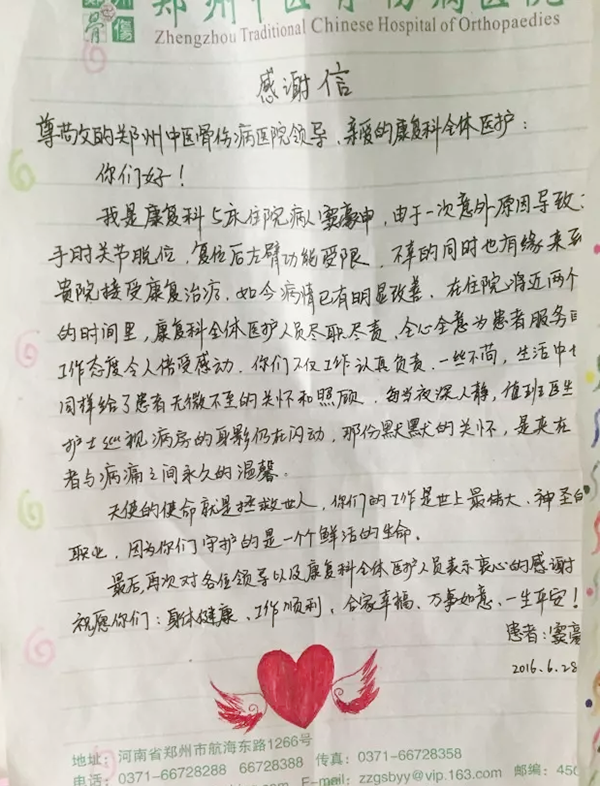 郑州中医骨伤病医院
Zhengzhou Traditional Chinese Hospital of Orthopaedics
感谢信
尊敬的郑州中医骨伤病医院领导、亲爱的康复科全体医护:
你们好!
我是康复科5床住院病人窦豪申,由于一次意外原因导致
手肘关节脱位,复位后左臂功能受限,不幸的同时也有缘来到
贵院接受康复治疗,如今病情已有明显改善。在住院将近两个
的时间里,康复科全体医护人员尽职尽责,全心全意为患者服务
工作态度令人倍受感动。你们不仅工作认真负责,一丝不苟,生活中
同样给了患者无微不至的关怀和照顾。每当夜深人静,值班医生
护士巡视病房的身影仍在闪动,那份默默的关怀,是夹在
者与病痛之间永久的温馨。
天使的使命就是拯救世人,你们的工作是世上最伟大、神圣的
职业,因为你们守护的是一个个鲜活的生命。
最后,再次对各位领导以及康复科全体医护人员表示衷心的感谢
祝愿你们:身体健康、工作顺利、合家幸福、万事如意、一生平安!
患者:窦豪
2016.6.28
地址:河南省郑州市航海东路1266号
电话:0371-66728288 66728388 传真:0371-66728358
E-mail:zzgsbyy@vip.163.com 邮编:450